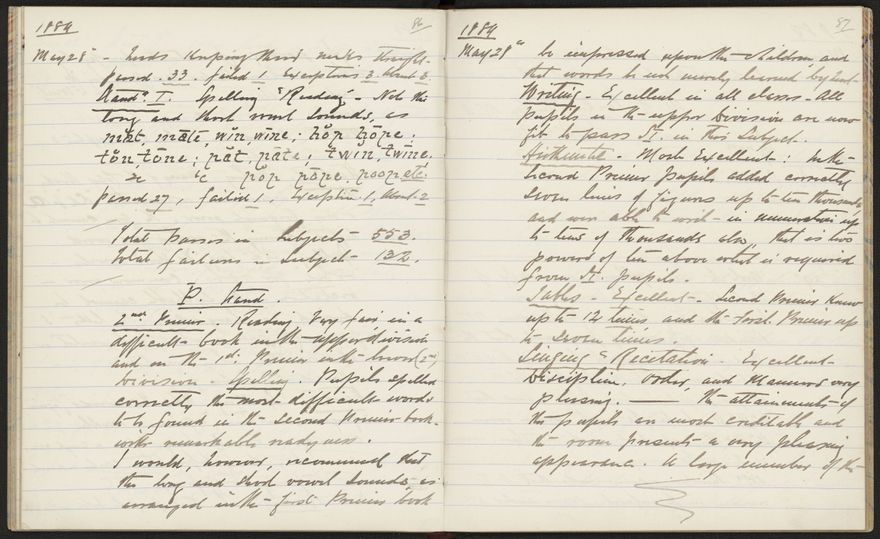 1884
86
May 28" - Needs keeping their marks straight.
passed. 33. failed 1. Exceptions 3. About 2.
Stand". I. Spelling & Reading - Note the
long and short vowel sounds, as
mat māte, win, wine; hop hope;
ton, tone; pat, pate; twin, twine.
pop pope,
passed 27, failed 1, Exception 1, About 2
Total Passes in Subjects 553.
Total failures in Subject - 13
P. Stand.
2nd Primer. Reading very fair in a
difficult book in the upper division
and in the 1st Primer in the lower (2nd)
division. Spelling. Pupils spelled
correctly the most difficult words
to be found in the second Primer book
with remarkable readyness.
I would, however, recommend that
the long and short vowel sounds, as
arranged in the first Primer book
1884
87
May 28" be impressed upon the children and
that words be not merely learned by
Writing - Excellent in all classes - All
pupils in the upper division are now
fit to pass St. I. in this Subject.
Arithmetic - Most Excellent: in the
second Primer pupils added correctly
seven lines of figures up to ten thousands,
and were able to write - in numeration up
to tens of thousands also, that is two
powers of ten above what is required
from St. I. pupils.
Tables - Excellent - Second Primer knew
up to 12 times and the First Primer up
to seven times.
Singing & Recitation. Excellent
Discipline, order, and Manners very
pleasing. — The attainments of
the pupils are most creditable and
the room presents a very pleasing
appearance. A large number of the